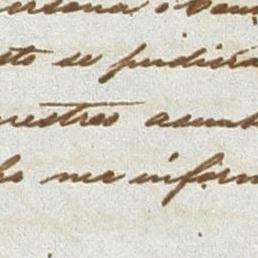 ersona
sto se pudiera
nuestros asunt
ho me inform